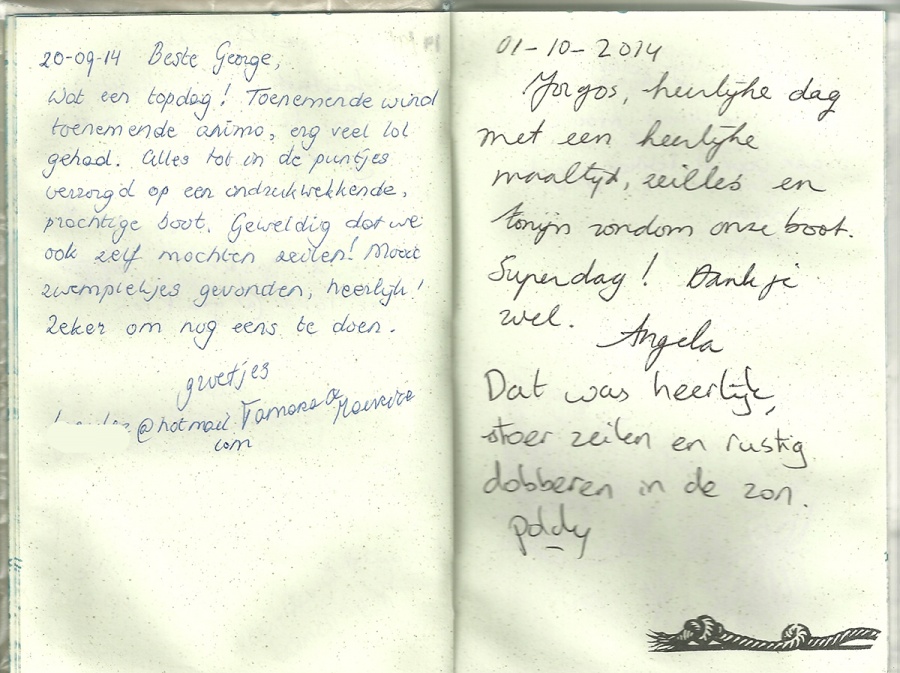 20-09-14 Beste George,
Wat een topdag! Toenemende wind
toenemende animo, erg veel lol
gehad. Alles tot in de puntjes
verzorgd op een indrukwekkende,
prachtige boot. Geweldig dat we
ook zelf mochten zeilen! Mooie
zwemplekjes gevonden, heerlijk!
Zeker om nog eens te doen.
groetjes
Tamara &
@hotmail.
com
01-10-2014
Yorgos, heerlijke dag
met een heerlijke
maaltijd, zeilles en
tonijn rondom onze boot.
Superdag! Dank je
wel.
Angela
Dat was heerlijk,
stoer zeilen en rustig
dobberen in de zon.
Poldy